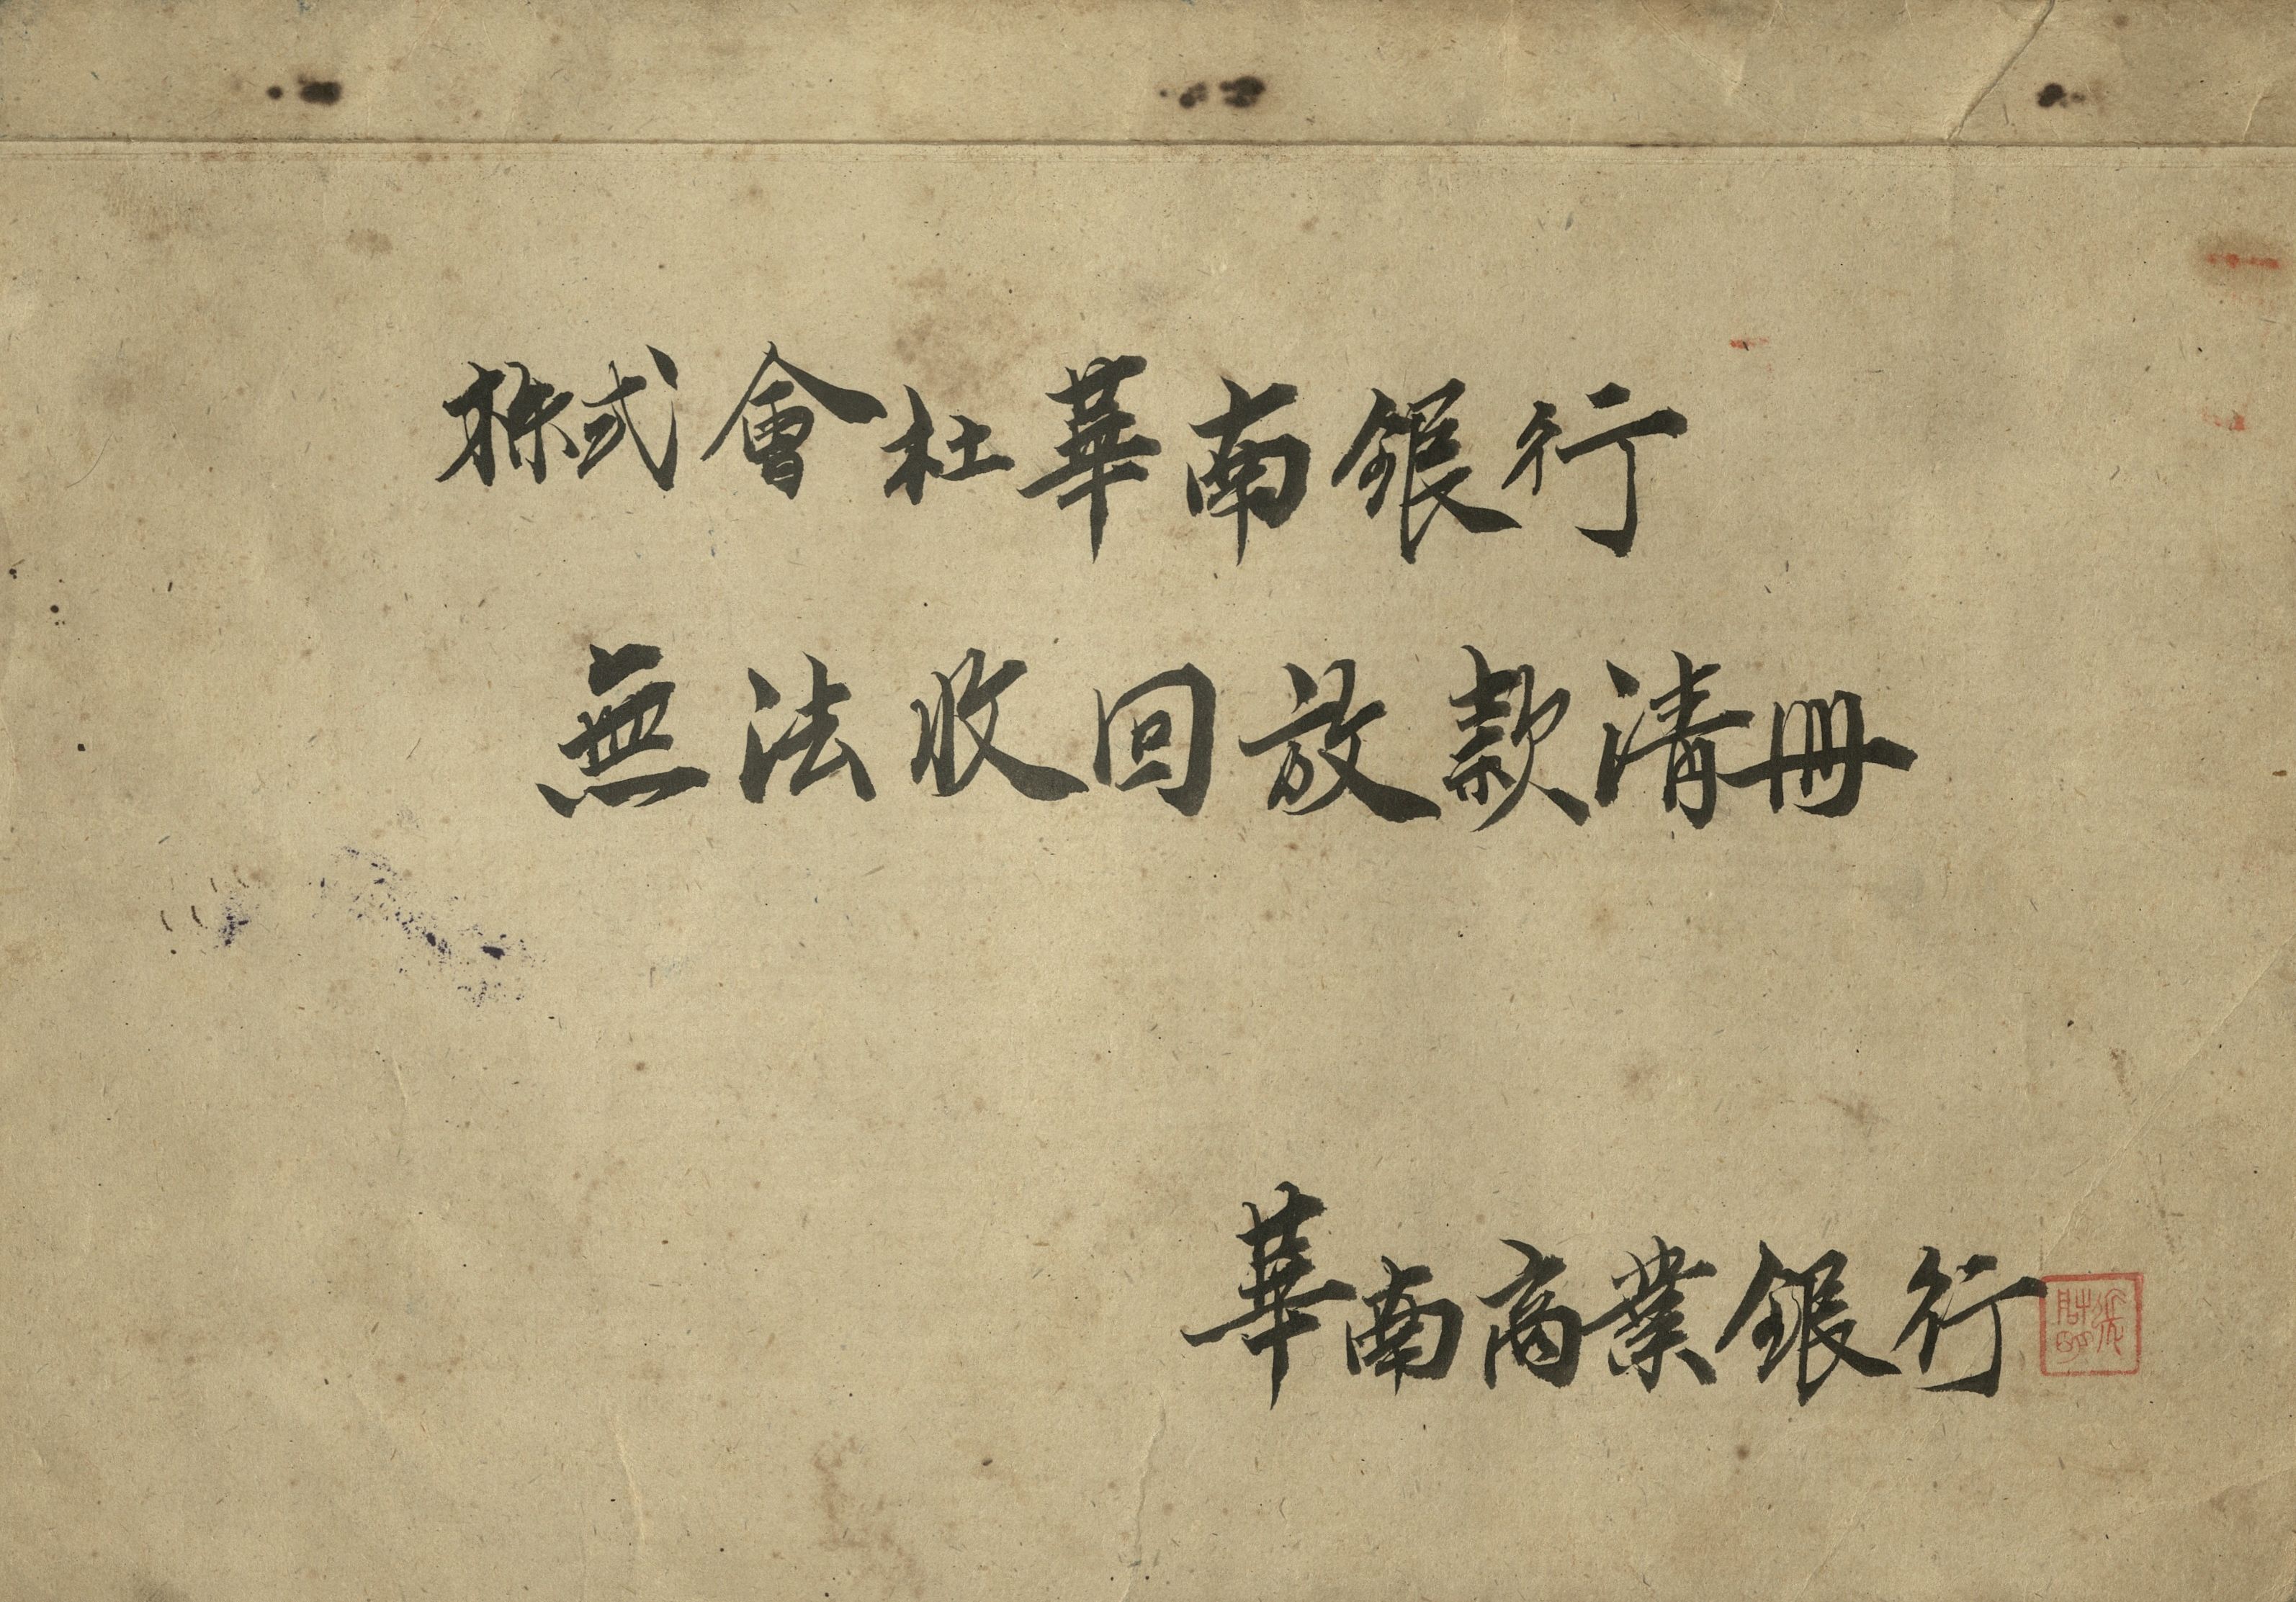 株式會社華南銀行
無法收回放款清冊
華南商業銀行